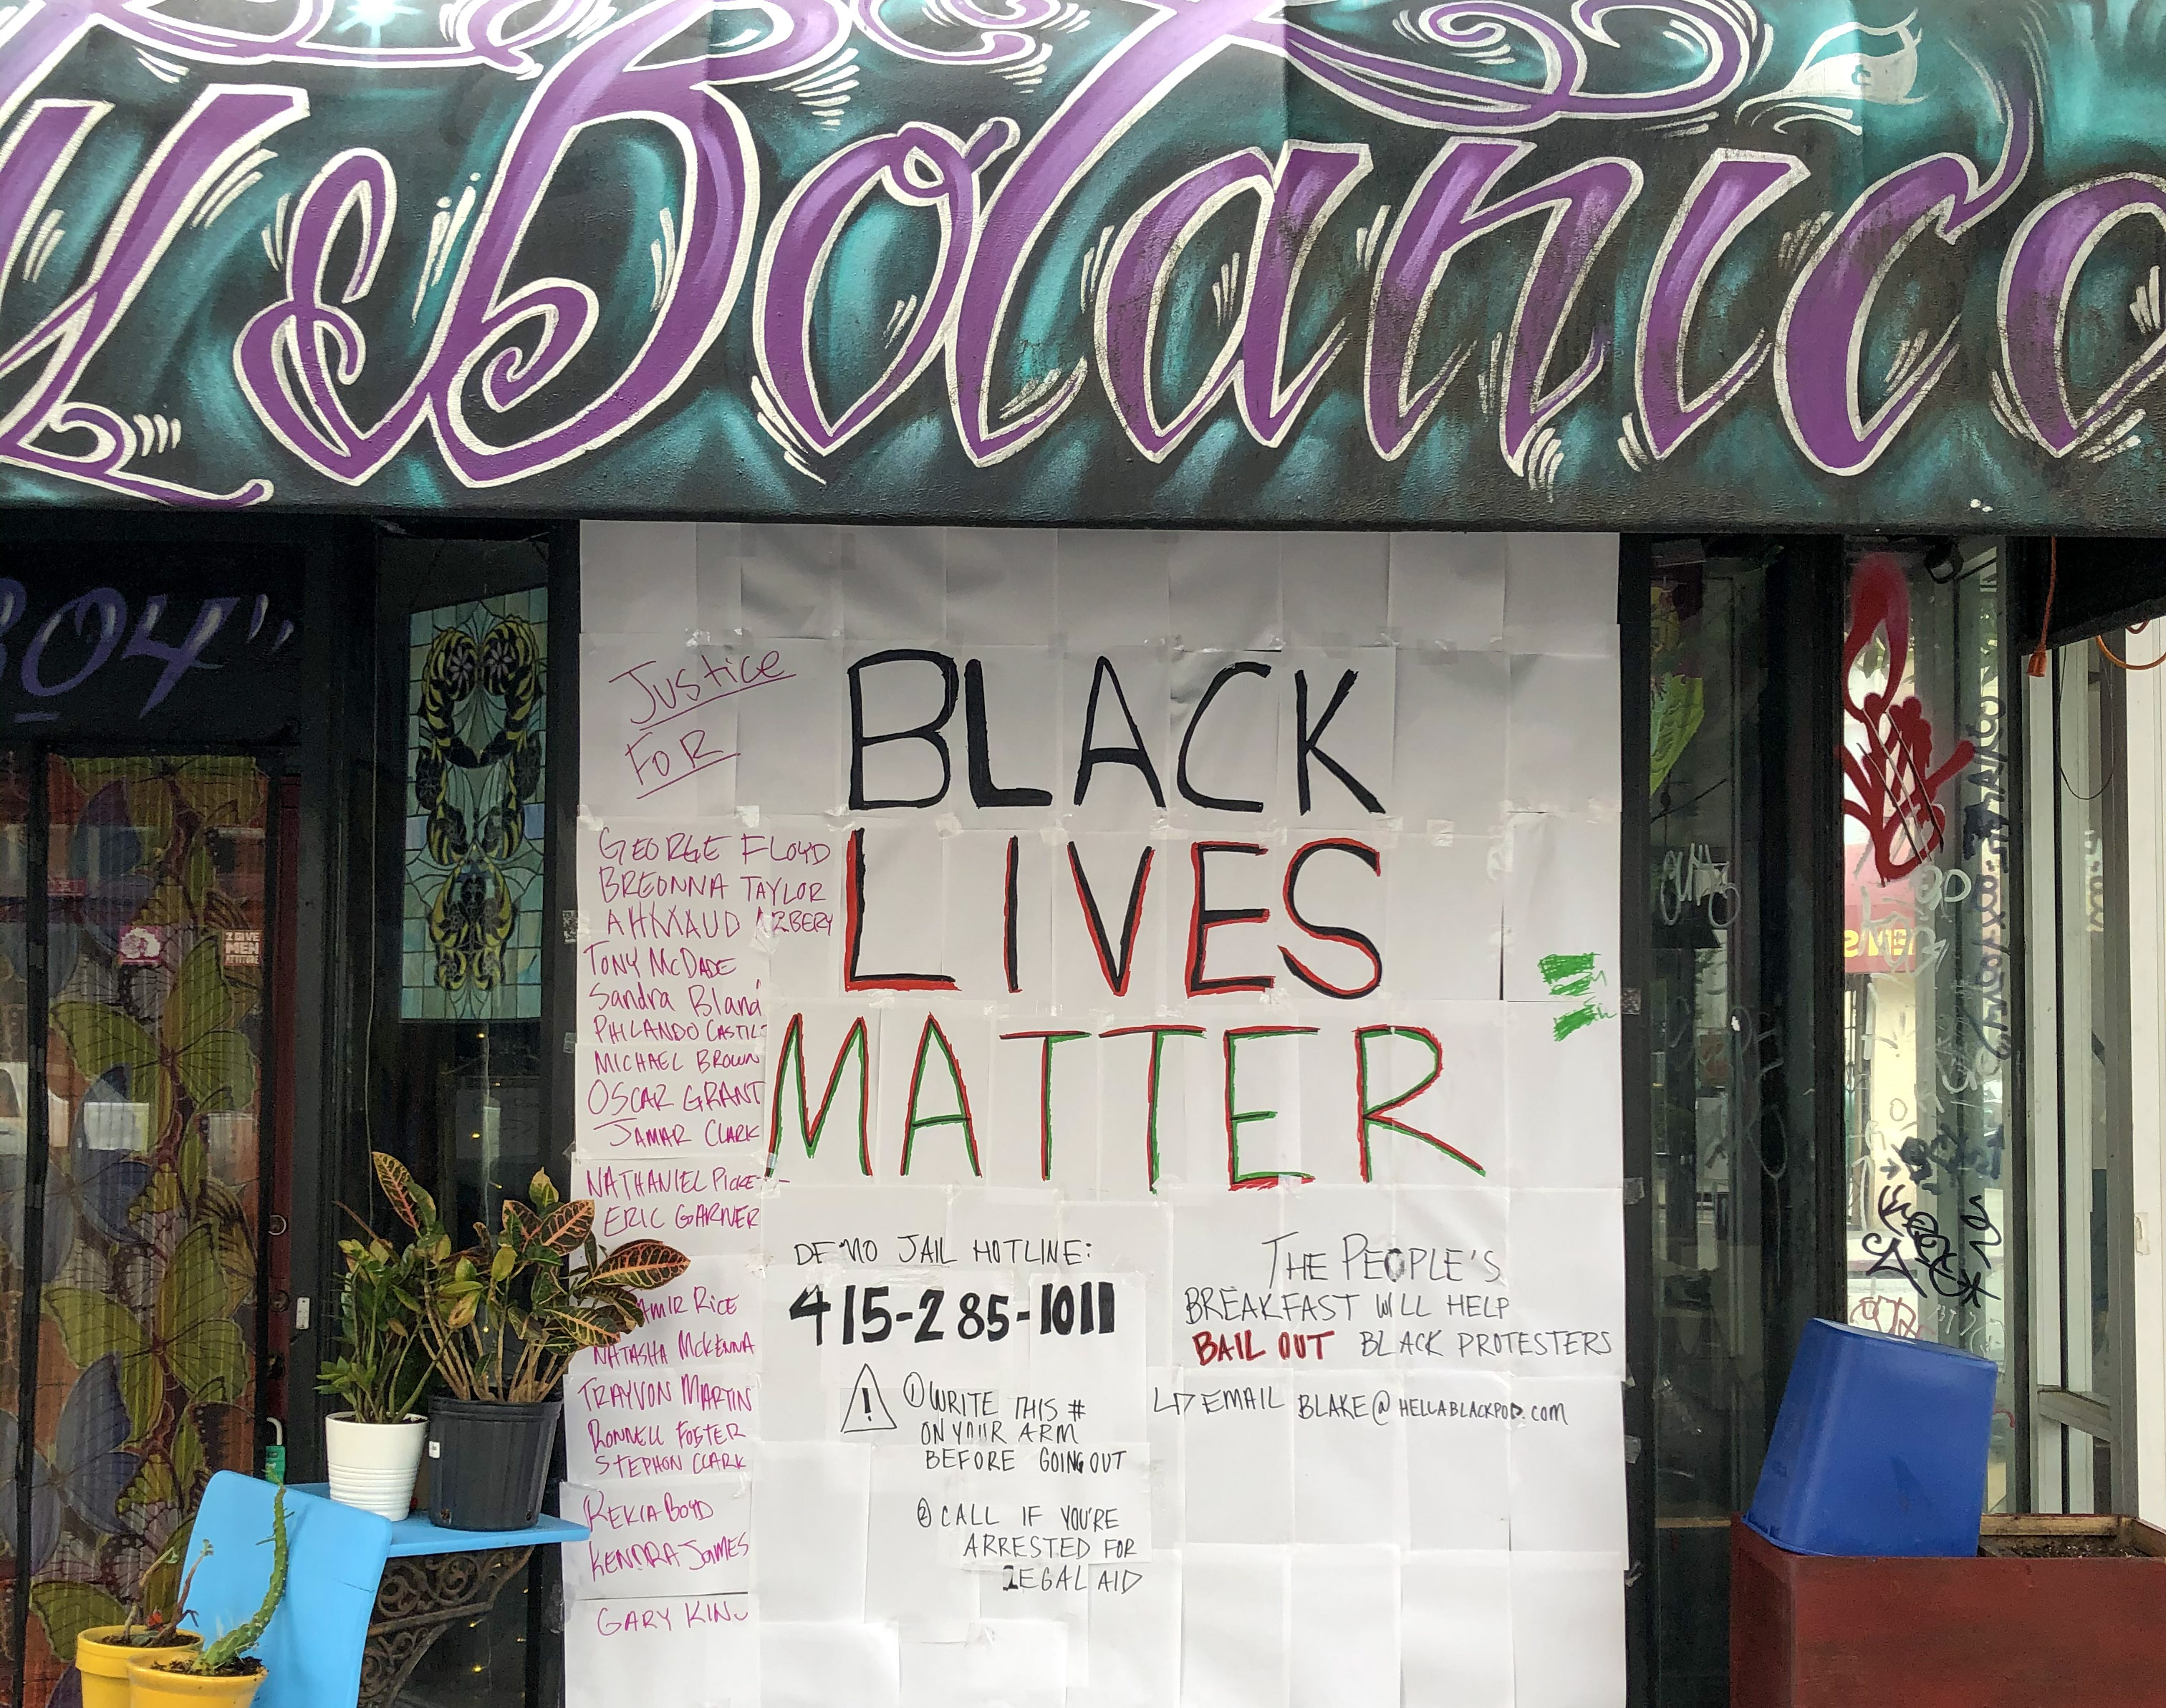 Botanica
BOY"
Justice
FOR
GEORGE FLOYD
BREONNA TAYLOR
AHMAUD ARBERY
TONY McDADE
Sandra Bland
PHILANDO CASTILE
MICHAEL BROWN
OSCAR GRANT
JAMAR CLARK
NATHANIEL PICKE
ERIC GARNER
AMIR RICE
NATASHA McKENNA
TRAYVON MARTIN
RONNELL FOSTER
STEPHON CLARK
REKIA BOYD
KENDRA JAMES
GARY KING
BLACK
LIVES
MATTER
DEMO JAIL HOTLINE:
415-285-1011
! ① WRITE THIS #
ON YOUR ARM
BEFORE GOING OUT
② CALL IF YOU'RE
ARRESTED FOR
LEGAL AID
THE PEOPLE'S
BREAKFAST WILL HELP
BAIL OUT BLACK PROTESTERS
↳ EMAIL BLAKE@HELLABLACKPOD.COM